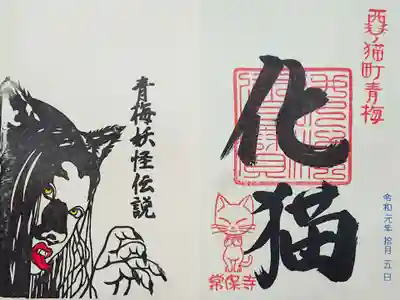 猫町青梅
化猫
令和元年 拾月五日
常保寺
青梅妖怪伝説